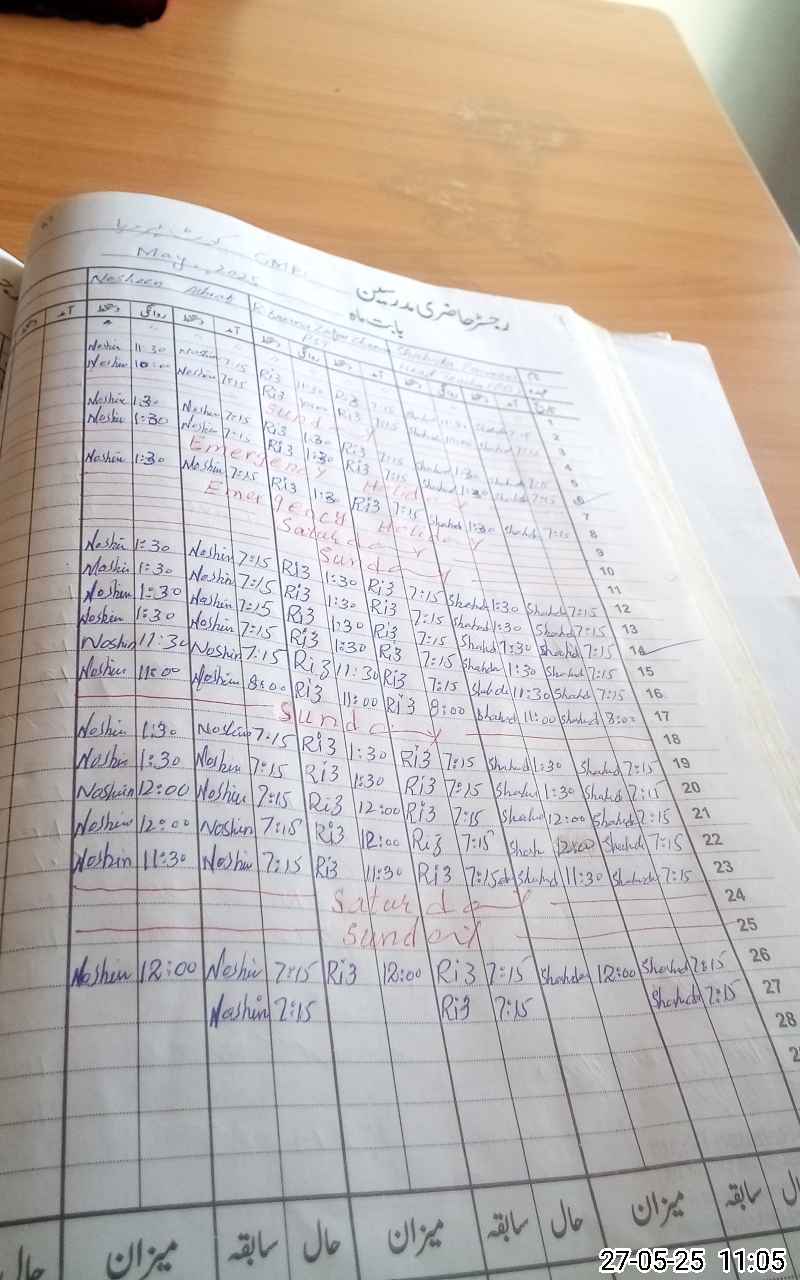 GMP
May 2025
رجسٹر حاضری مدرسین
بابت ماہ
Nosheen
Shahida Parveen
آمد دستخط روانگی دستخط آمد دستخط روانگی دستخط آمد
1
Noshin 11:30 Noshin 7:15 Ri3 11:30 Ri3 7:15 2
Noshin 10:00 Noshin 7:15 Ri3 Ri3 7:15 3
Sunday 4
Noshin 1:30 Noshin 7:15 Ri3 1:30 Ri3 7:15 Shahd 1:30 Shahd 7:15 5
Noshin 1:30 Noshin 7:15 Ri3 1:30 Ri3 7:15 Shahd 1:30 Shahd 7:15 6
Emergency Holiday 7
Noshin 1:30 Noshin 7:15 Ri3 1:30 Ri3 7:15 Shahd 1:30 Shahd 7:15 8
Emergency Holiday 9
Saturday 10
Sunday 11
Noshin 1:30 Noshin 7:15 Ri3 1:30 Ri3 7:15 Shahd 1:30 Shahd 7:15 12
Noshin 1:30 Noshin 7:15 Ri3 1:30 Ri3 7:15 Shahd 1:30 Shahd 7:15 13
Noshin 1:30 Noshin 7:15 Ri3 1:30 Ri3 7:15 Shahd 1:30 Shahd 7:15 14
Noshin 1:30 Noshin 7:15 Ri3 1:30 Ri3 7:15 Shahd 1:30 Shahd 7:15 15
Noshin 11:30 Noshin 7:15 Ri3 11:30 Ri3 7:15 Shahd 11:30 Shahd 7:15 16
Noshin 11:00 Noshin 8:00 Ri3 11:00 Ri3 8:00 Shahd 11:00 Shahd 8:00 17
Sunday 18
Noshin 1:30 Noshin 7:15 Ri3 1:30 Ri3 7:15 Shahd 1:30 Shahd 7:15 19
Noshin 1:30 Noshin 7:15 Ri3 1:30 Ri3 7:15 Shahd 1:30 Shahd 7:15 20
Noshin 12:00 Noshin 7:15 Ri3 12:00 Ri3 7:15 Shahd 12:00 Shahd 7:15 21
Noshin 12:00 Noshin 7:15 Ri3 12:00 Ri3 7:15 Shah 12:00 Shahd 7:15 22
Noshin 11:30 Noshin 7:15 Ri3 11:30 Ri3 7:15 Shahd 11:30 Shahd 7:15 23
Saturday 24
Sunday 25
Noshin 12:00 Noshin 7:15 Ri3 12:00 Ri3 7:15 Shahda 12:00 Shahd 7:15 26
Noshin 7:15 Ri3 7:15 Shahd 7:15 27
28
حال سابقہ میزان حال سابقہ میزان حال سابقہ میزان حال
27-05-25 11:05